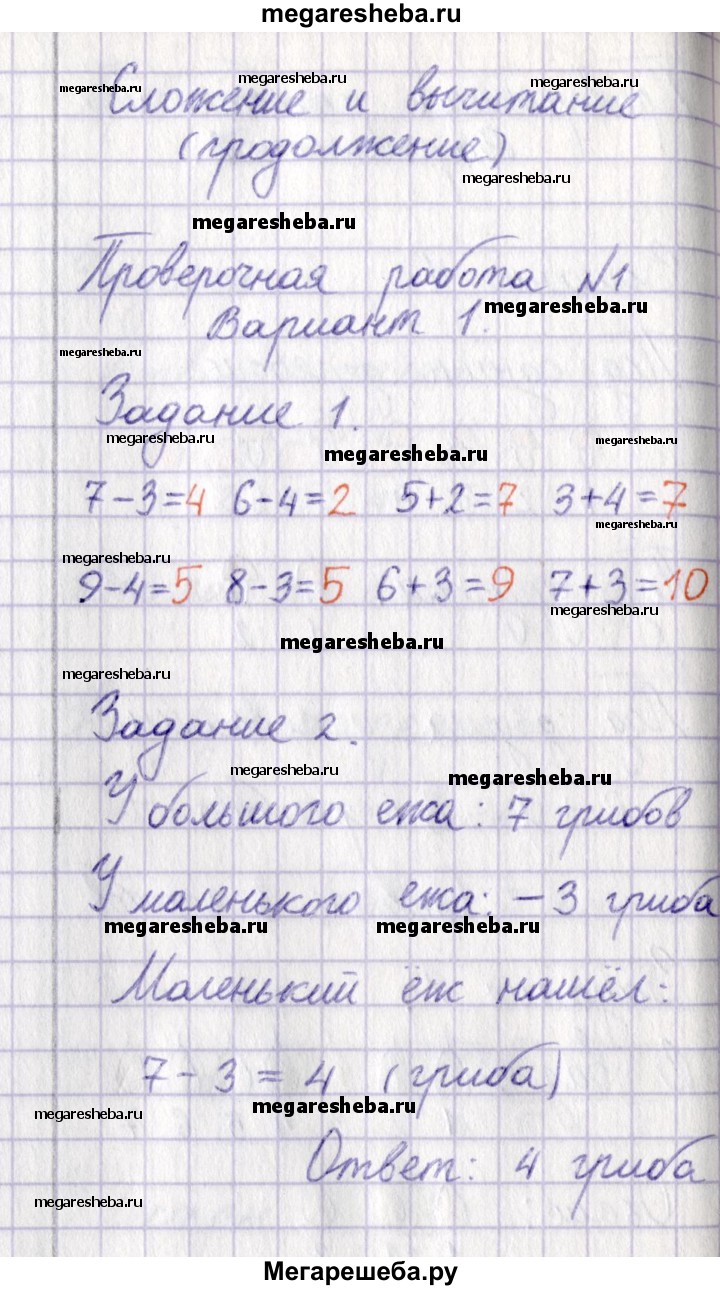 megaresheba.ru
megaresheba.ru megaresheba.ru megaresheba.ru
Сложение и вычитание
(продолжение)
megaresheba.ru
megaresheba.ru
Проверочная работа №1
megaresheba.ru
Вариант 1.
megaresheba.ru
Задание 1.
megaresheba.ru megaresheba.ru megaresheba.ru
7-3=4 6-4=2 5+2=7 3+4=7
megaresheba.ru
megaresheba.ru
9-4=5 8-3=5 6+3=9 7+3=10
megaresheba.ru
megaresheba.ru
megaresheba.ru
Задание 2.
megaresheba.ru megaresheba.ru
У большого ежа: 7 грибов
У маленького ежа: -3 гриба
megaresheba.ru megaresheba.ru
Маленький ёж нашёл:
7-3=4 (гриба)
megaresheba.ru megaresheba.ru
Ответ: 4 гриба
megaresheba.ru
Мегарешеба.ру